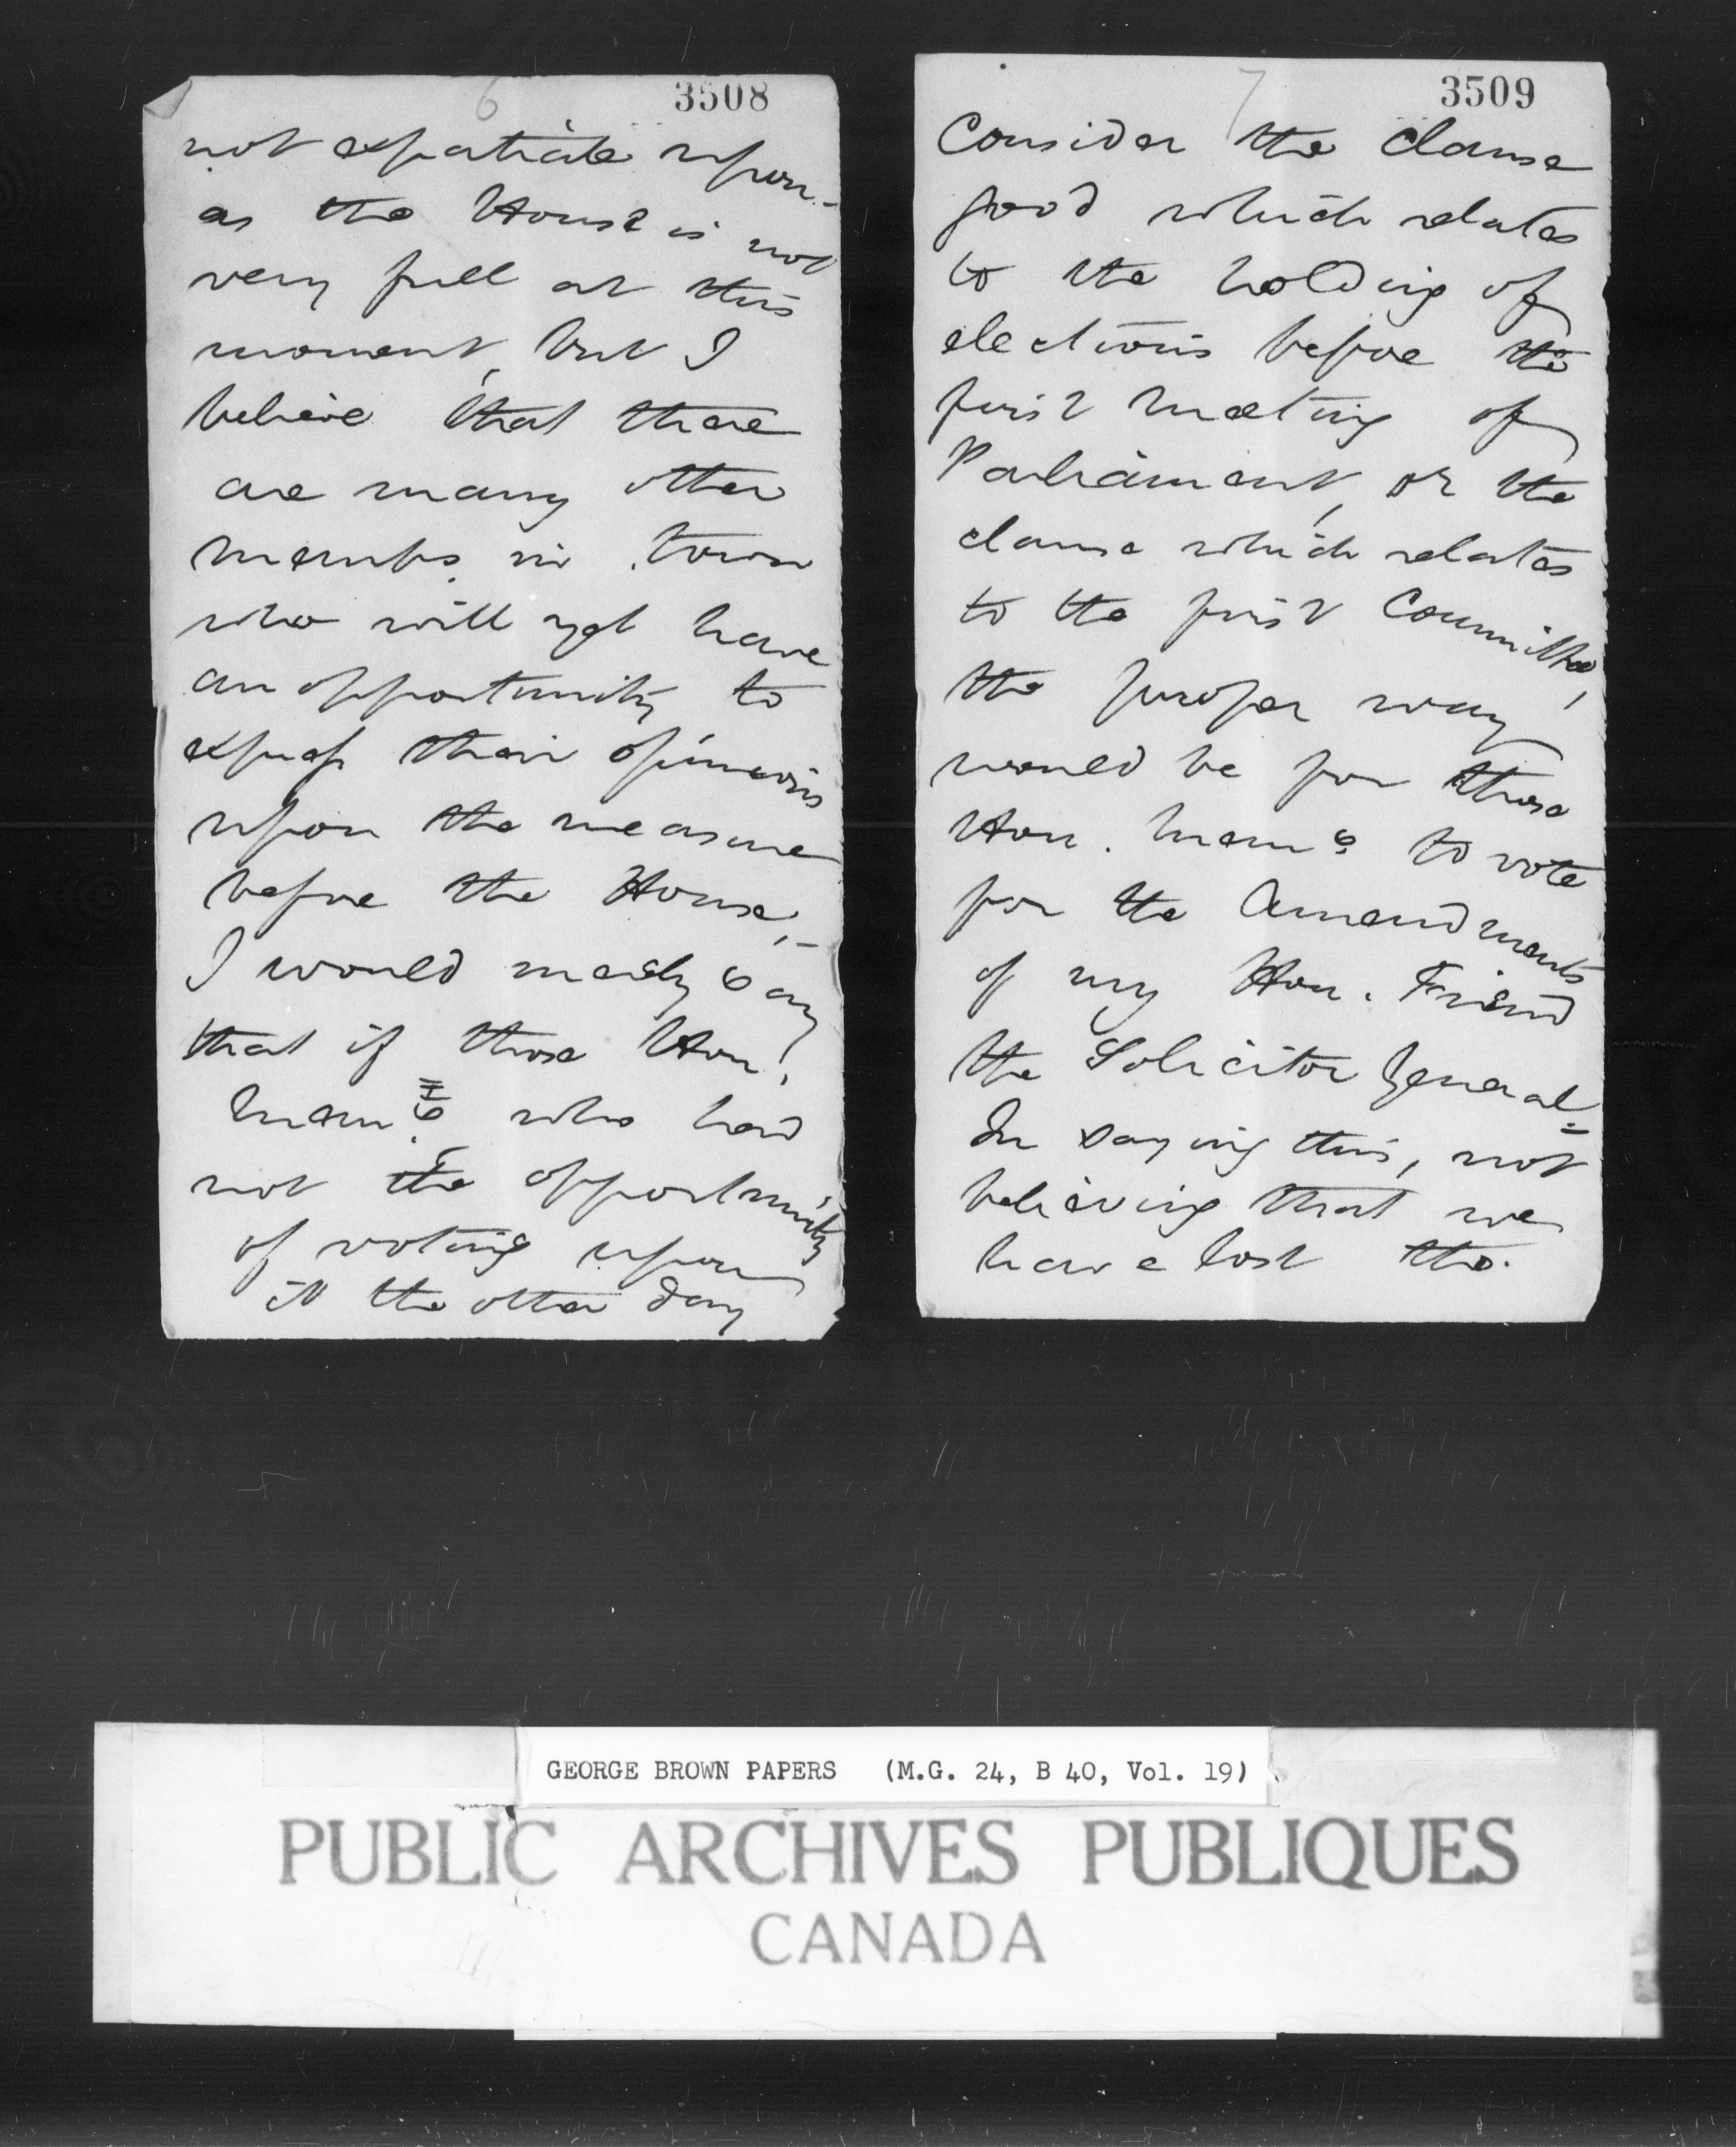 6
3508
not expatiate upon -
as the House is not
very full at this
moment, but I
believe that there
are many other
membs. in town
who will yet have
an opportunity to
express their opinions
upon the measure
before the House, -
I would merely say
that if those Hon.
Mems. who had
not the opportunity
of voting upon
it the other day
7
3509
Consider the clause
good which relates
to the holding of
elections before the
first meeting of
Parliament, or the
clause which relates
to the first Committee,
the proper way
would be for those
Hon. Mems to vote
for the Amendments
of my Hon. Friend
the Solicitor General =
In saying this, not
believing that we
have lost the
GEORGE BROWN PAPERS (M.G. 24, B 40, Vol. 19)
PUBLIC ARCHIVES PUBLIQUES
CANADA